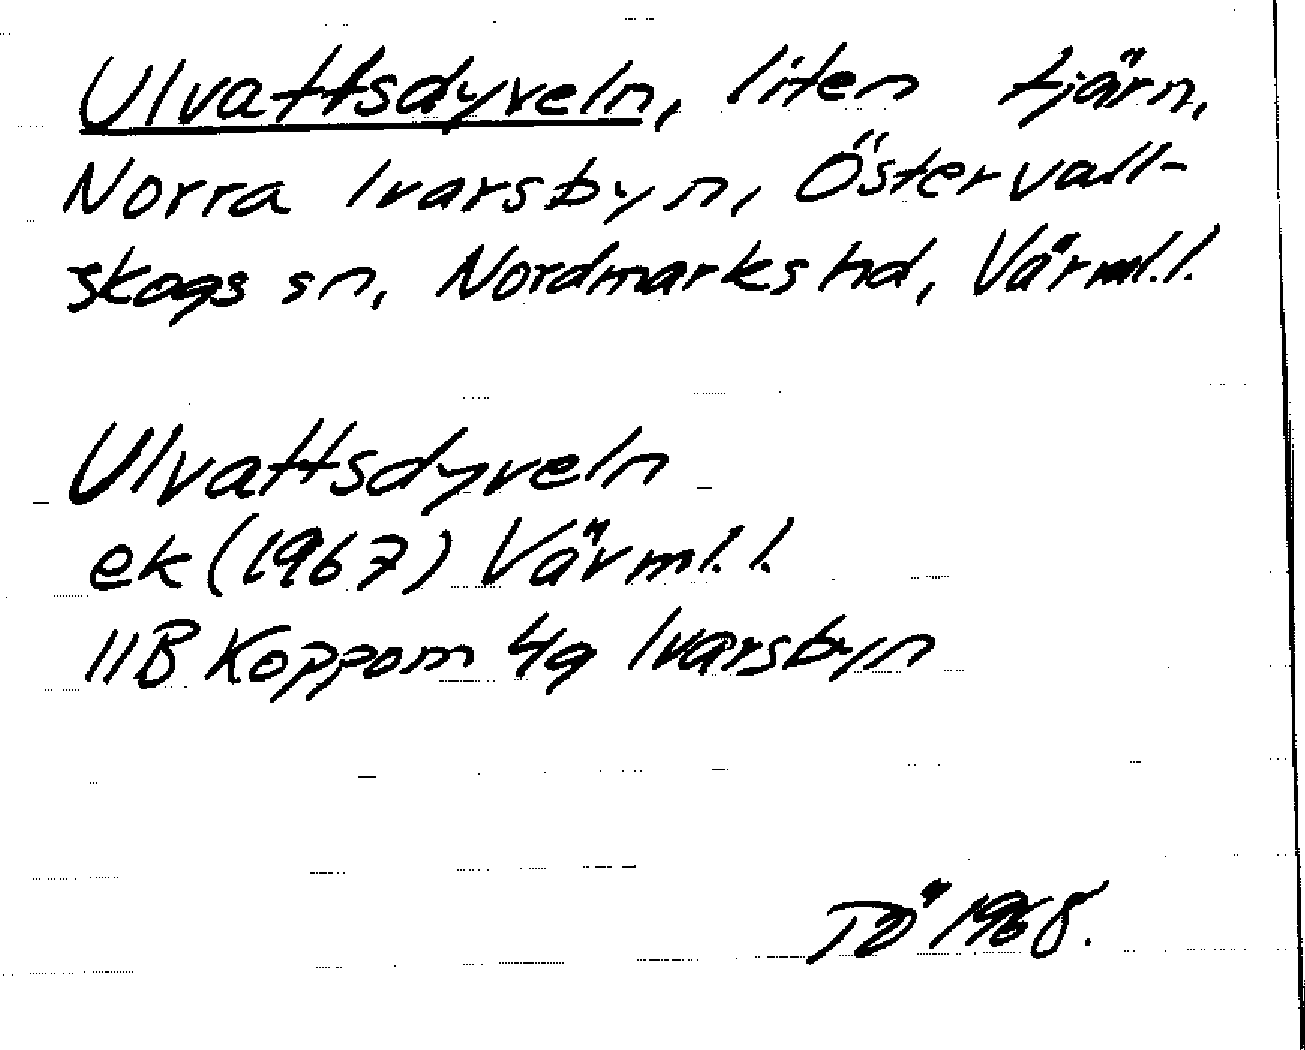 Ulvattsdyveln, liten tjärn,
Norra Ivarsbyn, Östervall-
skogs sn, Nordmarks hd, Värml.l.
Ulvattsdyveln
ek (1967) Värml.l.
11B Koppom 4g Ivarsbyn
TÖ 1968.